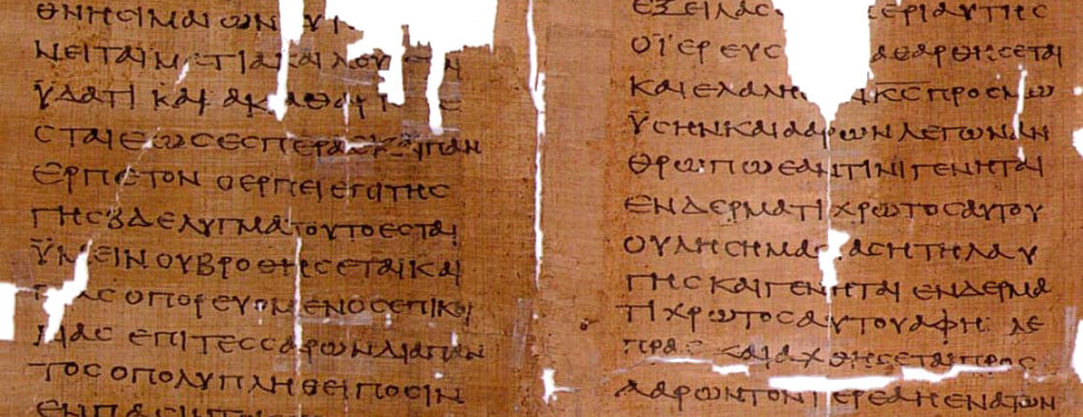 ΘΝΗϹΙΜΑΙΩΝ
ΝΕΙΤΑΙ ΚΑΙ ΛΟΥ
ΫΔΑΤΙ ΚΑΙ
ϹΤΑΙ ΕΩϹ ΕϹΠΕΡΑϹ ΠΑΝ
ΕΡΠΕΤΟΝ Ο ΕΡΠΕΙ ΕΠΙ ΤΗϹ
ΓΗϹ ΒΔΕΛΥΓΜΑ ΤΟΥΤΟ ΕϹΤΑΙ
ΫΜΕΙΝ ΟΥ ΒΡΟΘΗϹΕΤΑΙ ΚΑΙ
Ο ΠΟΡΕΥΟΜΕΝΟϹ ΕΠΙ ΚΟΙ
ΛΙΑϹ ΕΠΙ ΤΕϹϹΑΡΩΝ ΔΙΑ ΠΑΝ
ΤΟϹ Ο ΠΟΛΥΠΛΗΘΕΙ ΠΟϹΙΝ
ΕΝ ΠΑϹΙΝ
ΕΞΕΙΛΑϹ ΠΕΡΙ ΑΥΤΗϹ
Ο ΪΕΡΕΥϹ ΚΑΘΑΡΘΗϹΕΤΑΙ
ΚΑΙ ΕΛΑΛΗϹΕΝ ΚϹ ΠΡΟϹ ΜΩ
ΫϹΗΝ ΚΑΙ ΑΑΡΩΝ ΛΕΓΩΝ ΑΝ
ΘΡΩΠΩ ΕΑΝ ΤΙΝΙ ΓΕΝΗΤΑΙ
ΕΝ ΔΕΡΜΑΤΙ ΧΡΩΤΟϹ ΑΥΤΟΥ
ΟΥΛΗ ϹΗΜΑϹΙΑϹ Η ΤΗΛΑΥ
ΓΗϹ ΚΑΙ ΓΕΝΗΤΑΙ ΕΝ ΔΕΡΜΑ
ΤΙ ΧΡΩΤΟϹ ΑΥΤΟΥ ΑΦΗ ΛΕ
ΠΡΑϹ ΚΑΙ ΑΧΘΗϹΕΤΑΙ ΠΡΟϹ
ΑΑΡΩΝ ΤΟΝ ΙΕΡΕΑ Η ΕΝΑ ΤΩΝ